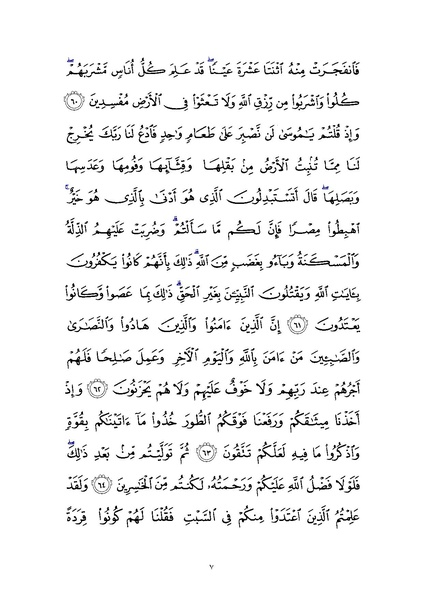 فَٱنفَجَرَتْ مِنْهُ ٱثْنَتَا عَشْرَةَ عَيْنًۭا ۖ قَدْ عَلِمَ كُلُّ أُنَاسٍۢ مَّشْرَبَهُمْ ۖ
كُلُوا۟ وَٱشْرَبُوا۟ مِن رِّزْقِ ٱللَّهِ وَلَا تَعْثَوْا۟ فِى ٱلْأَرْضِ مُفْسِدِينَ ﴿٦٠﴾
وَإِذْ قُلْتُمْ يَـٰمُوسَىٰ لَن نَّصْبِرَ عَلَىٰ طَعَامٍۢ وَٰحِدٍۢ فَٱدْعُ لَنَا رَبَّكَ يُخْرِجْ
لَنَا مِمَّا تُنۢبِتُ ٱلْأَرْضُ مِنۢ بَقْلِهَا وَقِثَّآئِهَا وَفُومِهَا وَعَدَسِهَا
وَبَصَلِهَا ۖ قَالَ أَتَسْتَبْدِلُونَ ٱلَّذِى هُوَ أَدْنَىٰ بِٱلَّذِى هُوَ خَيْرٌ ۚ
ٱهْبِطُوا۟ مِصْرًۭا فَإِنَّ لَكُم مَّا سَأَلْتُمْ ۗ وَضُرِبَتْ عَلَيْهِمُ ٱلذِّلَّةُ
وَٱلْمَسْكَنَةُ وَبَآءُو بِغَضَبٍۢ مِّنَ ٱللَّهِ ۗ ذَٰلِكَ بِأَنَّهُمْ كَانُوا۟ يَكْفُرُونَ
بِـَٔايَـٰتِ ٱللَّهِ وَيَقْتُلُونَ ٱلنَّبِيِّـۧنَ بِغَيْرِ ٱلْحَقِّ ۗ ذَٰلِكَ بِمَا عَصَوا۟ وَّكَانُوا۟
يَعْتَدُونَ ﴿٦١﴾ إِنَّ ٱلَّذِينَ ءَامَنُوا۟ وَٱلَّذِينَ هَادُوا۟ وَٱلنَّصَـٰرَىٰ
وَٱلصَّـٰبِـِٔينَ مَنْ ءَامَنَ بِٱللَّهِ وَٱلْيَوْمِ ٱلْـَٔاخِرِ وَعَمِلَ صَـٰلِحًۭا فَلَهُمْ
أَجْرُهُمْ عِندَ رَبِّهِمْ وَلَا خَوْفٌ عَلَيْهِمْ وَلَا هُمْ يَحْزَنُونَ ﴿٦٢﴾ وَإِذْ
أَخَذْنَا مِيثَـٰقَكُمْ وَرَفَعْنَا فَوْقَكُمُ ٱلطُّورَ خُذُوا۟ مَآ ءَاتَيْنَـٰكُم بِقُوَّةٍۢ
وَٱذْكُرُوا۟ مَا فِيهِ لَعَلَّكُمْ تَتَّقُونَ ﴿٦٣﴾ ثُمَّ تَوَلَّيْتُم مِّنۢ بَعْدِ ذَٰلِكَ ۖ
فَلَوْلَا فَضْلُ ٱللَّهِ عَلَيْكُمْ وَرَحْمَتُهُۥ لَكُنتُم مِّنَ ٱلْخَـٰسِرِينَ ﴿٦٤﴾ وَلَقَدْ
عَلِمْتُمُ ٱلَّذِينَ ٱعْتَدَوْا۟ مِنكُمْ فِى ٱلسَّبْتِ فَقُلْنَا لَهُمْ كُونُوا۟ قِرَدَةً
٧